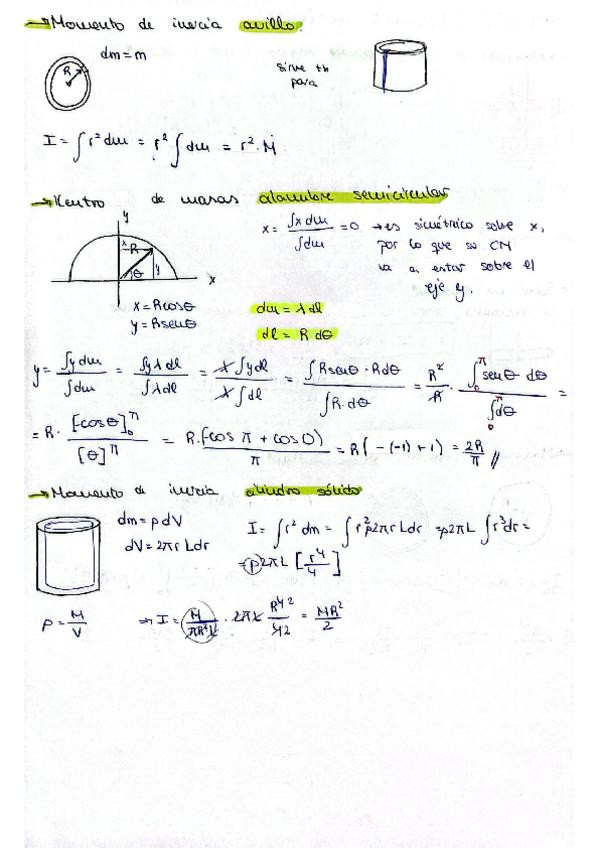 → Momento de inercia anillo.
R
dm = m
sirve tb
para
I = ∫r² dm = r² ∫dm = r² · M
→ Kentro de masas alambre semicircular
y
x
R
θ
y
x
x = Rcosθ
y = Rsenθ
x = ∫x dm / ∫dm = 0 → es simétrico sobre x,
por lo que su CM
va a estar sobre el
eje y.
dm = λ dl
dl = R dθ
y = ∫y dm / ∫dm = ∫y λ dl / ∫λ dl = λ ∫y dl / λ ∫dl = ∫Rsenθ · Rdθ / ∫R·dθ = R² / R · ∫₀^π senθ dθ / ∫₀^π dθ =
= R · [-cosθ]₀^π / [θ]^π = R·(-cos π + cos 0) / π = R(-(-1)+1) = 2R / π //
→ Momento de inercia cilindro sólido
dm = ρ dV
dV = 2πr L dr
I = ∫r² dm = ∫r² ρ2πr L dr = ρ2πL ∫r³ dr =
= ρ 2πL [r⁴ / 4]
ρ = M / V
⇒ I = M / πR²L · 2πL R⁴ ² / 4 2 = MR² / 2